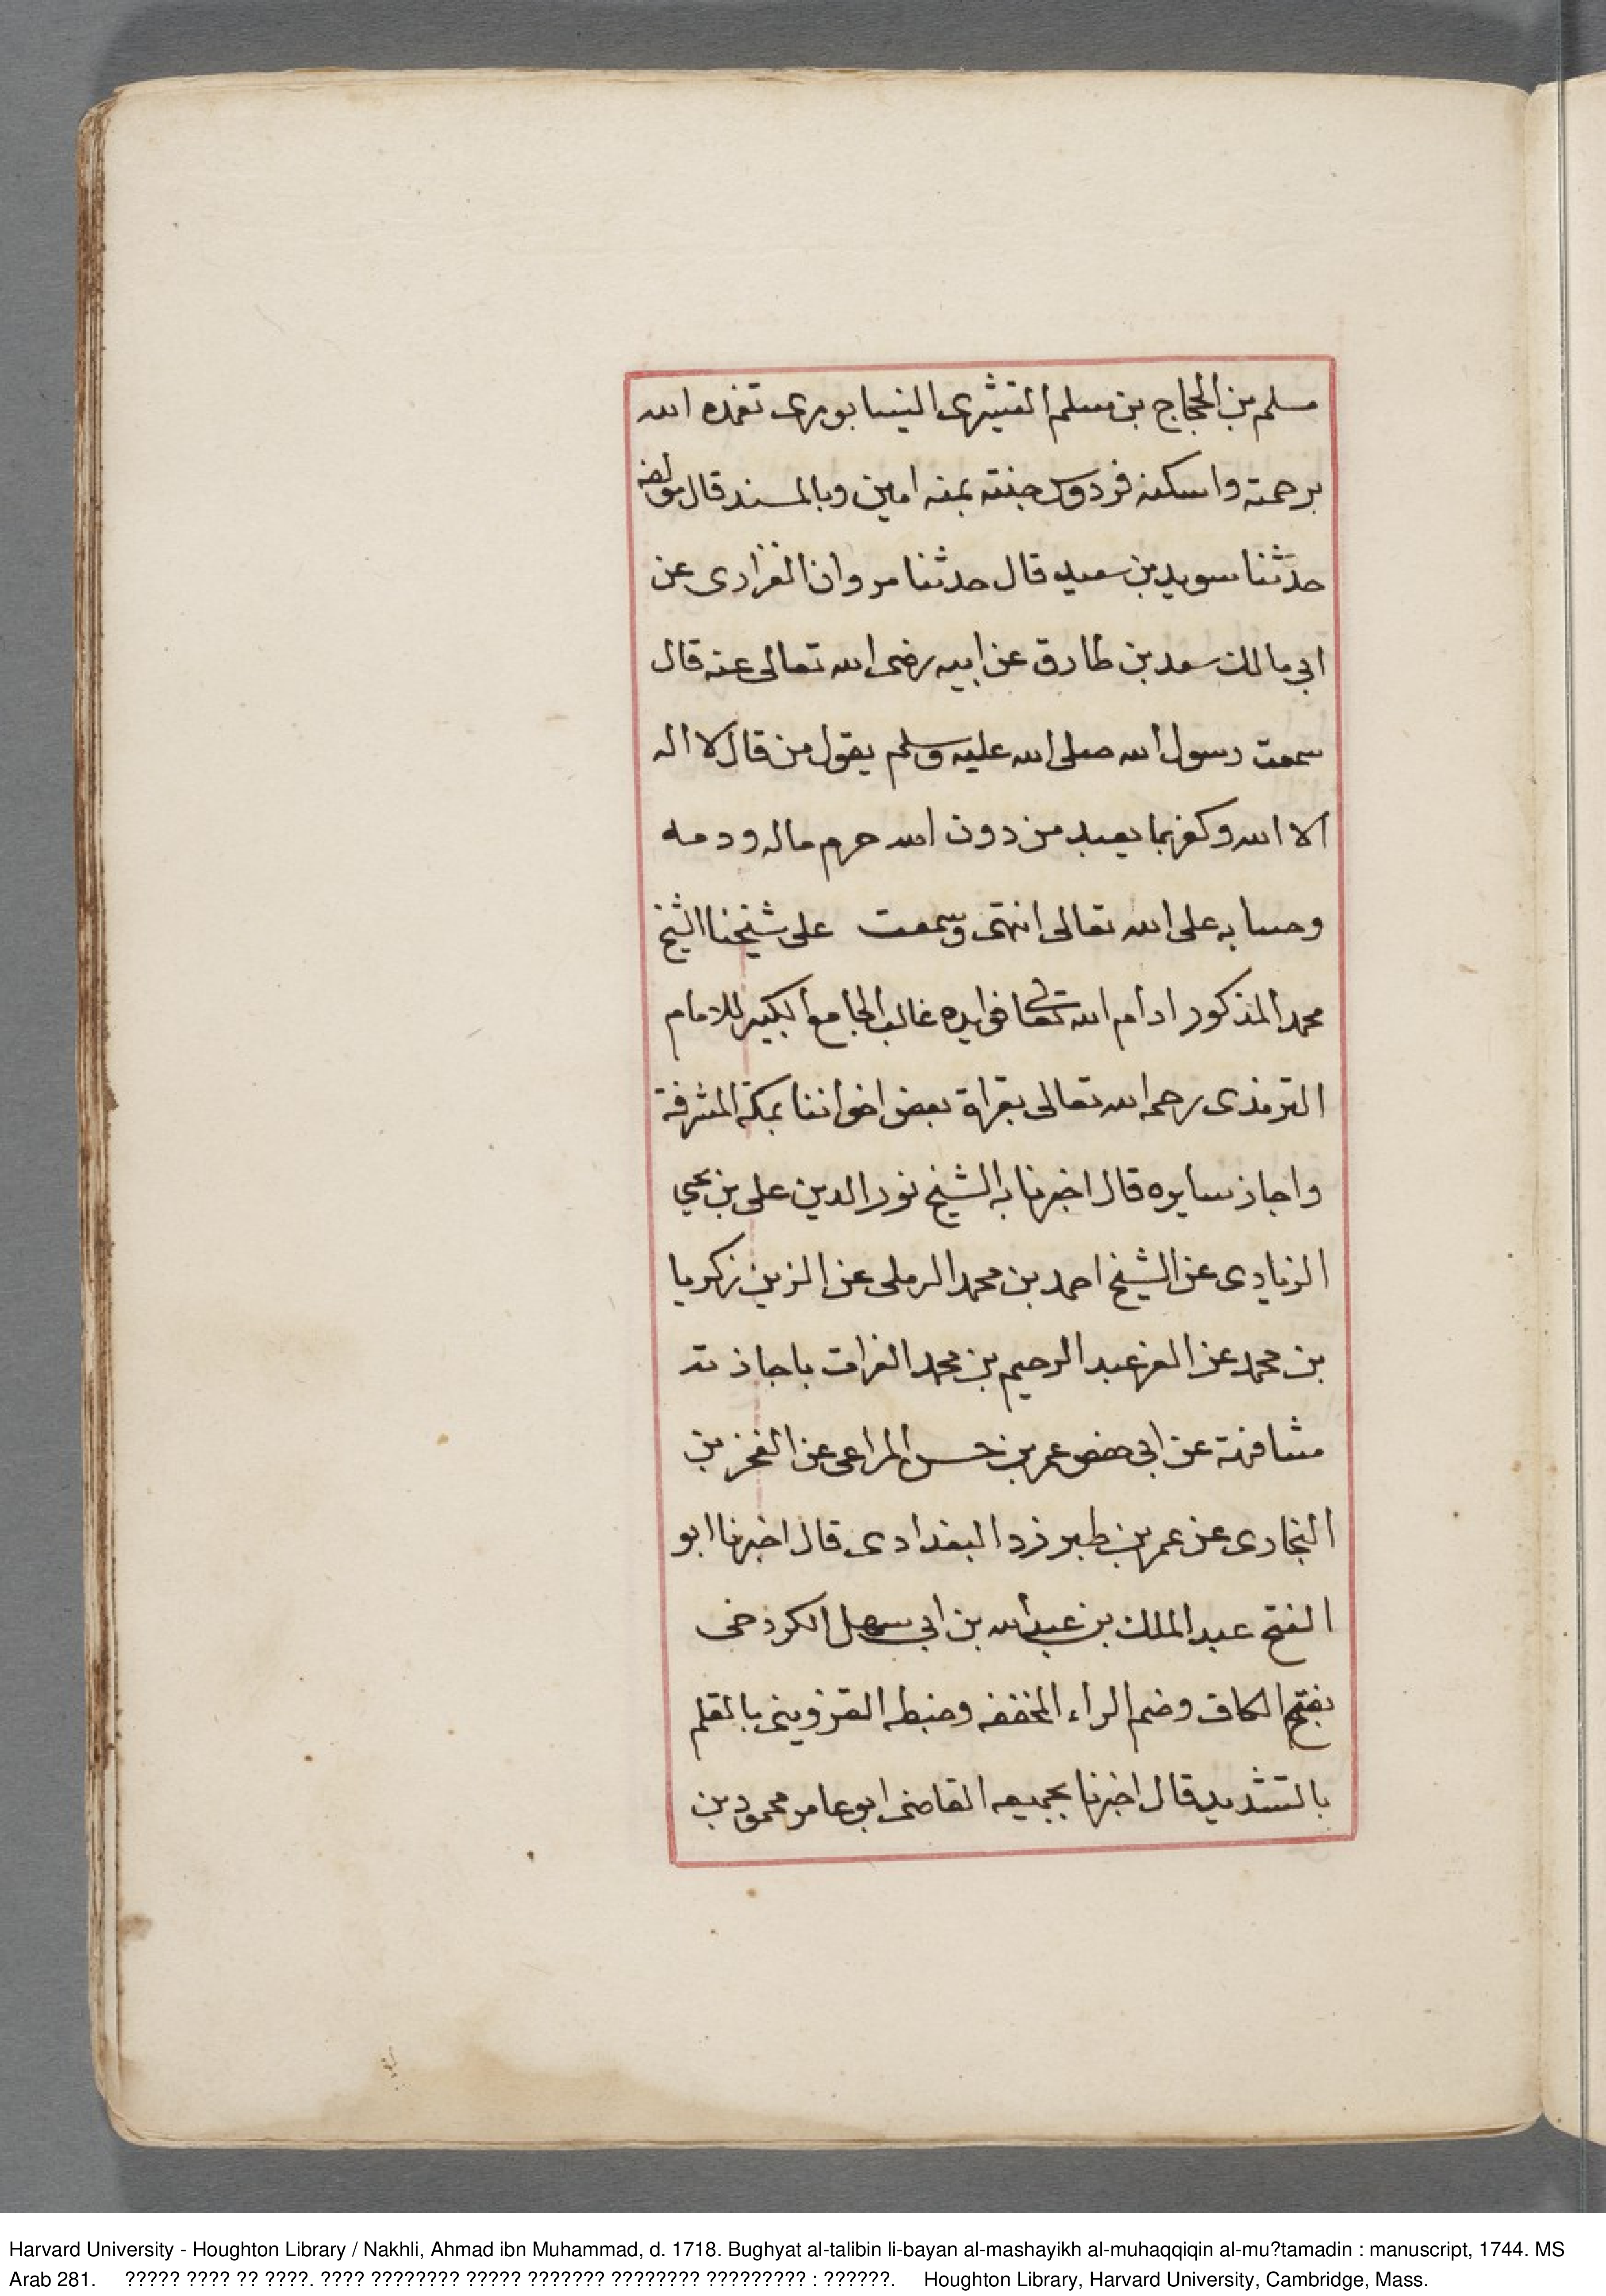 مسلم بن الحجاج بن مسلم القشيرى النيسابورى تغمده الله
برحمته واسكنه فردوس جنته بمنه امين وبالسند قال مولفه
حدثنا سويد بن سعيد قال حدثنا مروان الفزارى عن
ابي مالك سعد بن طارق عن ابيه رضى الله تعالى عنه قال
سمعت رسول الله صلى الله عليه وسلم يقول من قال لا اله
الا الله وكفر بما يعبد من دون الله حرم ماله ودمه
وحسابه على الله تعالى انتهى وسمعت على شيخنا الشيخ
محمد المذكور ادام الله تعالى فوايده غالب الجامع الكبير للامام
الترمذى رحمه الله تعالى بقراة بعض اخواننا بمكة المشرفة
واجاز سايره قال اخبرنا به الشيخ نور الدين على بن يحيي
الزيادى عن الشيخ احمد بن محمد الرملى عن الزين زكريا
بن محمد عن العز عبد الرحيم بن محمد الفرات باجازته
مشافهة عن ابي حفص عمر بن حسن المراعى عن الفخر بن
البخارى عن عمر بن طبرزد البغدادى قال اخبرنا ابو
الفتح عبد الملك بن عبد الله بن ابي سهل الكروخى
بفتح الكاف وضم الراء المخففه وضبطه القزوينى بالقلم
بالتشديد قال اخبرنا بجميعه القاضى ابو عامر محمود بن
Harvard University - Houghton Library / Nakhli, Ahmad ibn Muhammad, d. 1718. Bughyat al-talibin li-bayan al-mashayikh al-muhaqqiqin al-mu?tamadin : manuscript, 1744. MS
Arab 281. ????? ???? ?? ????. ???? ???????? ????? ??????? ???????? ????????? : ??????. Houghton Library, Harvard University, Cambridge, Mass.